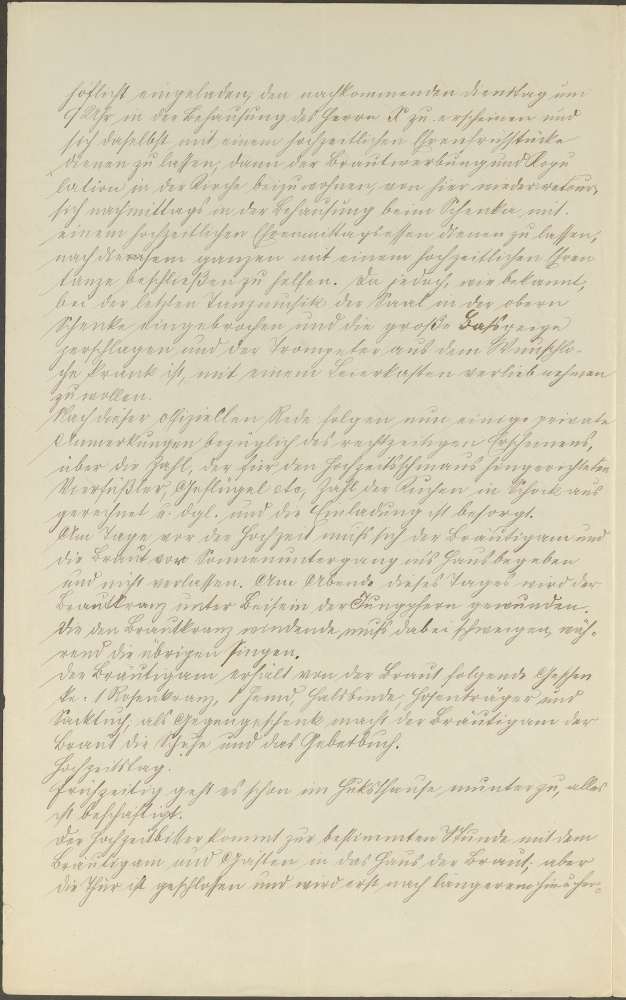 höflichst eingeladen, den nachkommenden Dienstag um
9 Uhr in der Behausung des Herrn X zu erscheinen und
sich daselbst mit einem hochzeitlichen Ehrenfrühstücke
dienen zu lassen, dann der Brautwerbung und Kopu
lation in der Kirche beizuwohnen, von hier wieder retour,
sich nachmittags in der Behausung beim Schenker mit
einem hochzeitlichen Ehrenmittagsessen dienen zu lassen,
nach diesem ganzen mit einem hochzeitlichen Ehren
tanze beschließen zu helfen. Da jedoch, wie bekannt,
bei der letzten Tanzmusik der Saal in der obern
Schenke eingebrochen und die große Baßgeige
zerschlagen und der Trompeter aus dem
krank ist, mit einem Leierkasten verlieb nehmen
zu wollen.
Nach dieser offiziellen Rede folgen nun einige private
Anmerkungen bezüglich des rechtzeitigen Erscheinens,
über die Zahl, der für den Hochzeitsschmaus hingerichteten
Vierfüßler, Geflügel etc, Zahl der Kuchen in Schock aus
gerechnet u. dgl. und die Einladung ist besorgt.
Am Tage vor der Hochzeit muß sich der Bräutigam und
die Braut vor Sonnenuntergang ins Haus begeben
und nicht verlassen. Am Abende dieses Tages wird der
Brautkranz unter Beisein der Jungfern gewunden.
Die den Brautkranz windende, muß dabei schweigen, wäh-
rend die übrigen singen.
Der Bräutigam erhält von der Braut folgende Geschen
ke: 1 Rosenkranz, 1 Hemd, Halsbinde, Hosenträger und
Sacktuch, als Gegengeschenk macht der Bräutigam der
Braut die Schuhe und das Gebetbuch.
Hochzeitstag.
Frühzeitig geht es schon im munter zu, alles
ist beschäftigt.
Der Hochzeitbitter kommt zur bestimmten Stunde mit dem
Bräutigam und Gästen in das Haus der Braut, aber
die Thür ist geschlossen und wird erst nach längerem